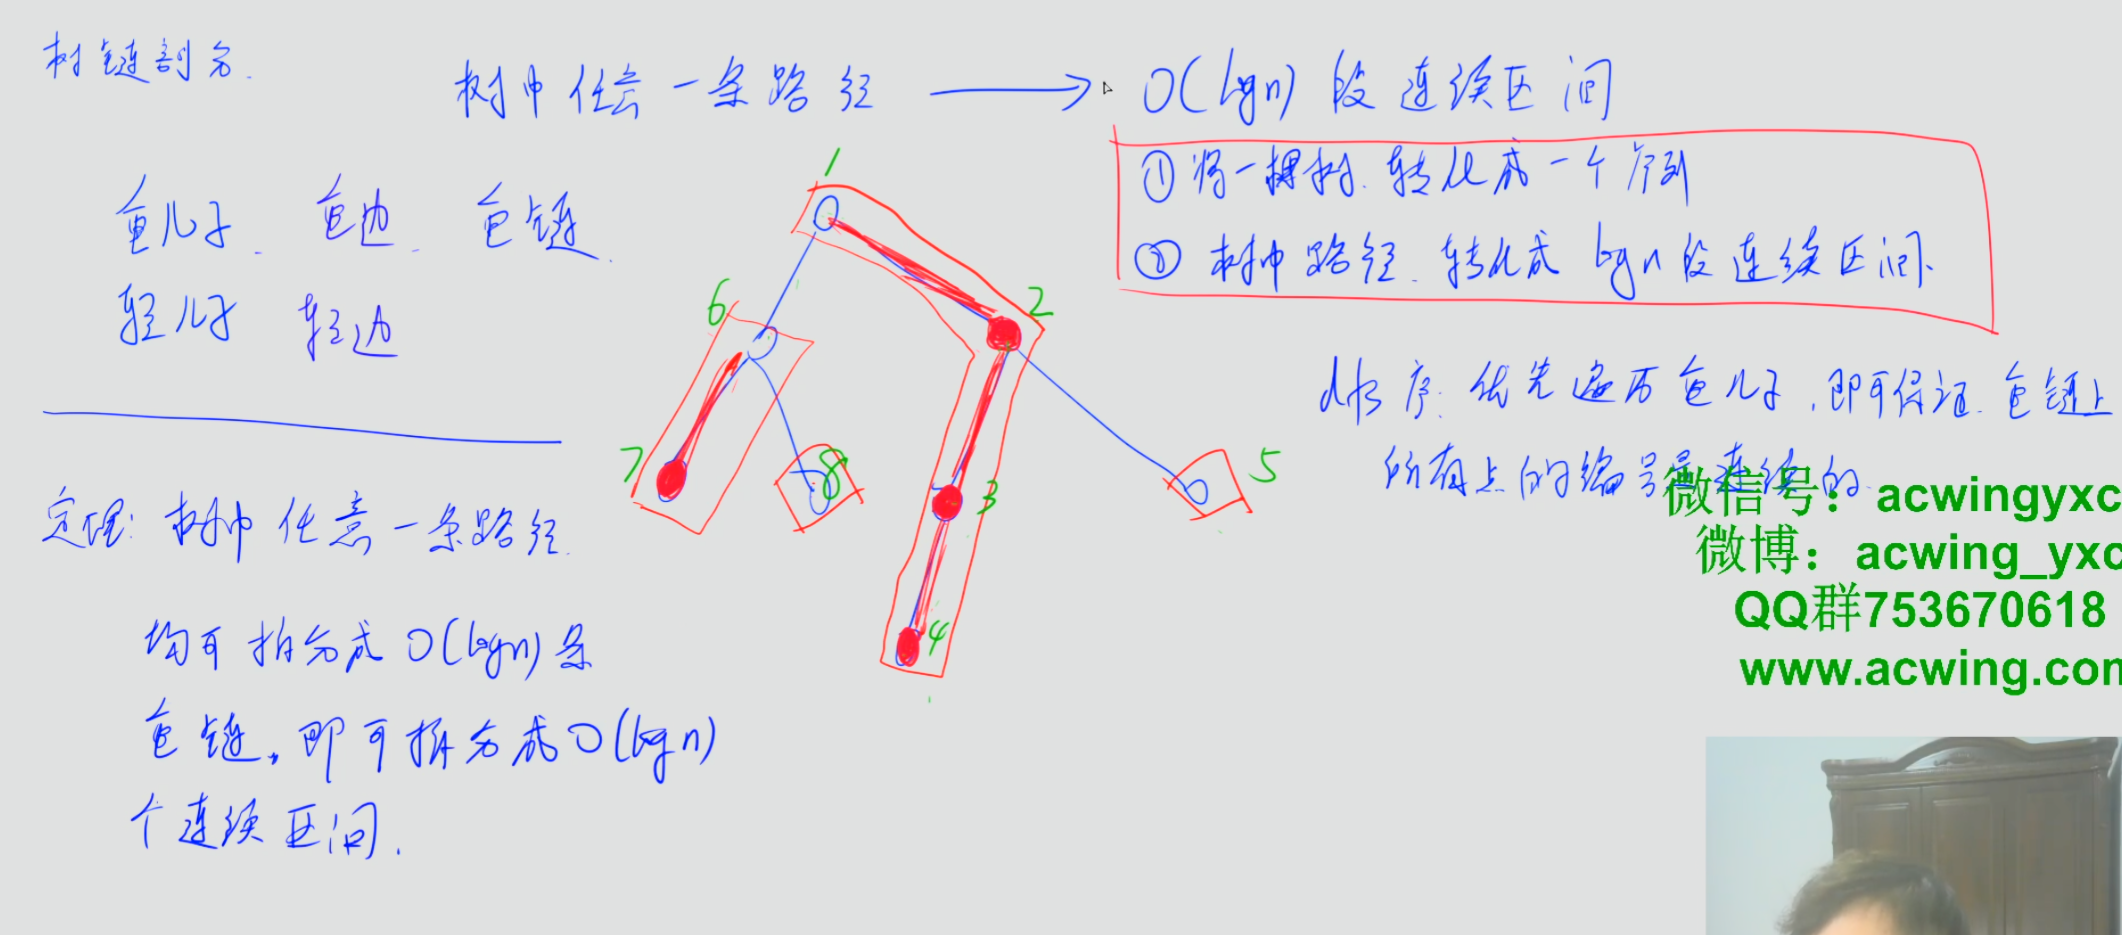 树链剖分.
树中任意一条路径 → O(logn) 段连续区间
① 将一棵树.转化成一个序列
② 树中路径.转化成 logn 段连续区间.
重儿子. 重边. 重链.
轻儿子 轻边
dfs序: 优先遍历重儿子,即可保证.重链上
所有点的编号是连续的.
1
2
3
4
5
6
7
8
定理: 树中任意一条路径.
均可拆分成 O(logn) 条
重链,即可拆分成 O(logn)
个连续区间.
微信号：acwingyxc
微博：acwing_yxc
QQ群753670618
www.acwing.com